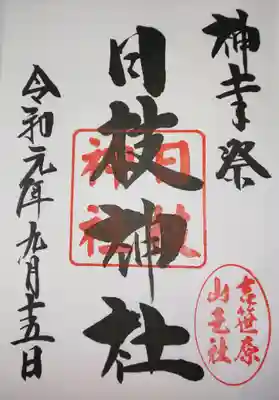 神幸祭
日枝神社
日枝神社
令和元年九月十五日
吉笹原
山王社